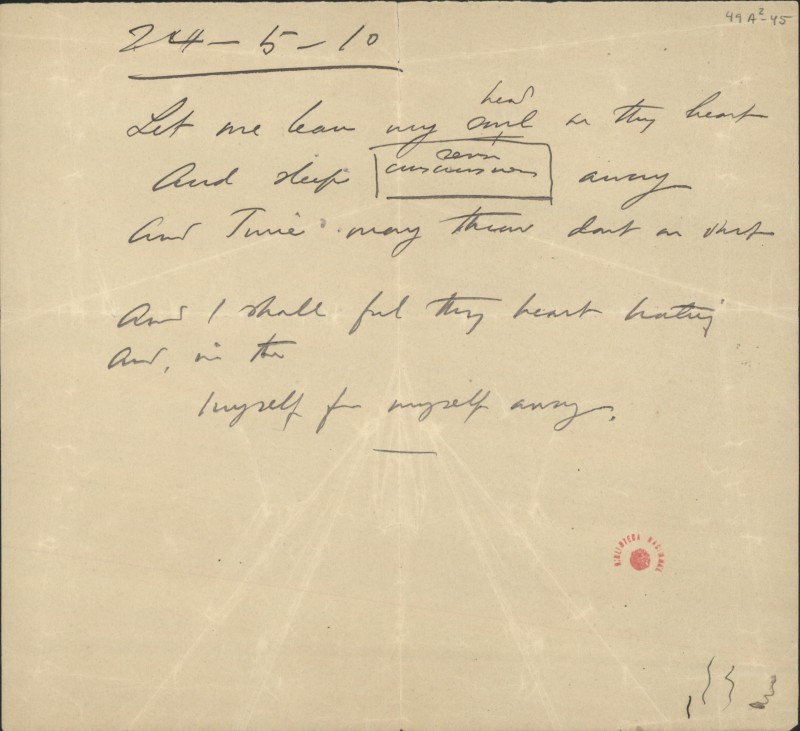 49A²-45
24-5-10
head
Let me lean my soul on thy heart
And sleep consciousness away
And Time may throw dart on dart
And I shall feel thy heart beating
And, in the
Myself from myself away.
BIBLIOTECA NACIONAL